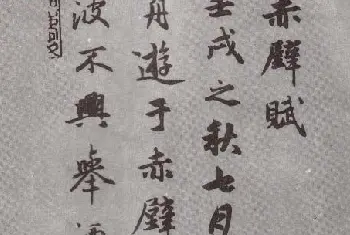 赤壁賦
壬戌之秋七月
舟遊于赤壁
波不興舉